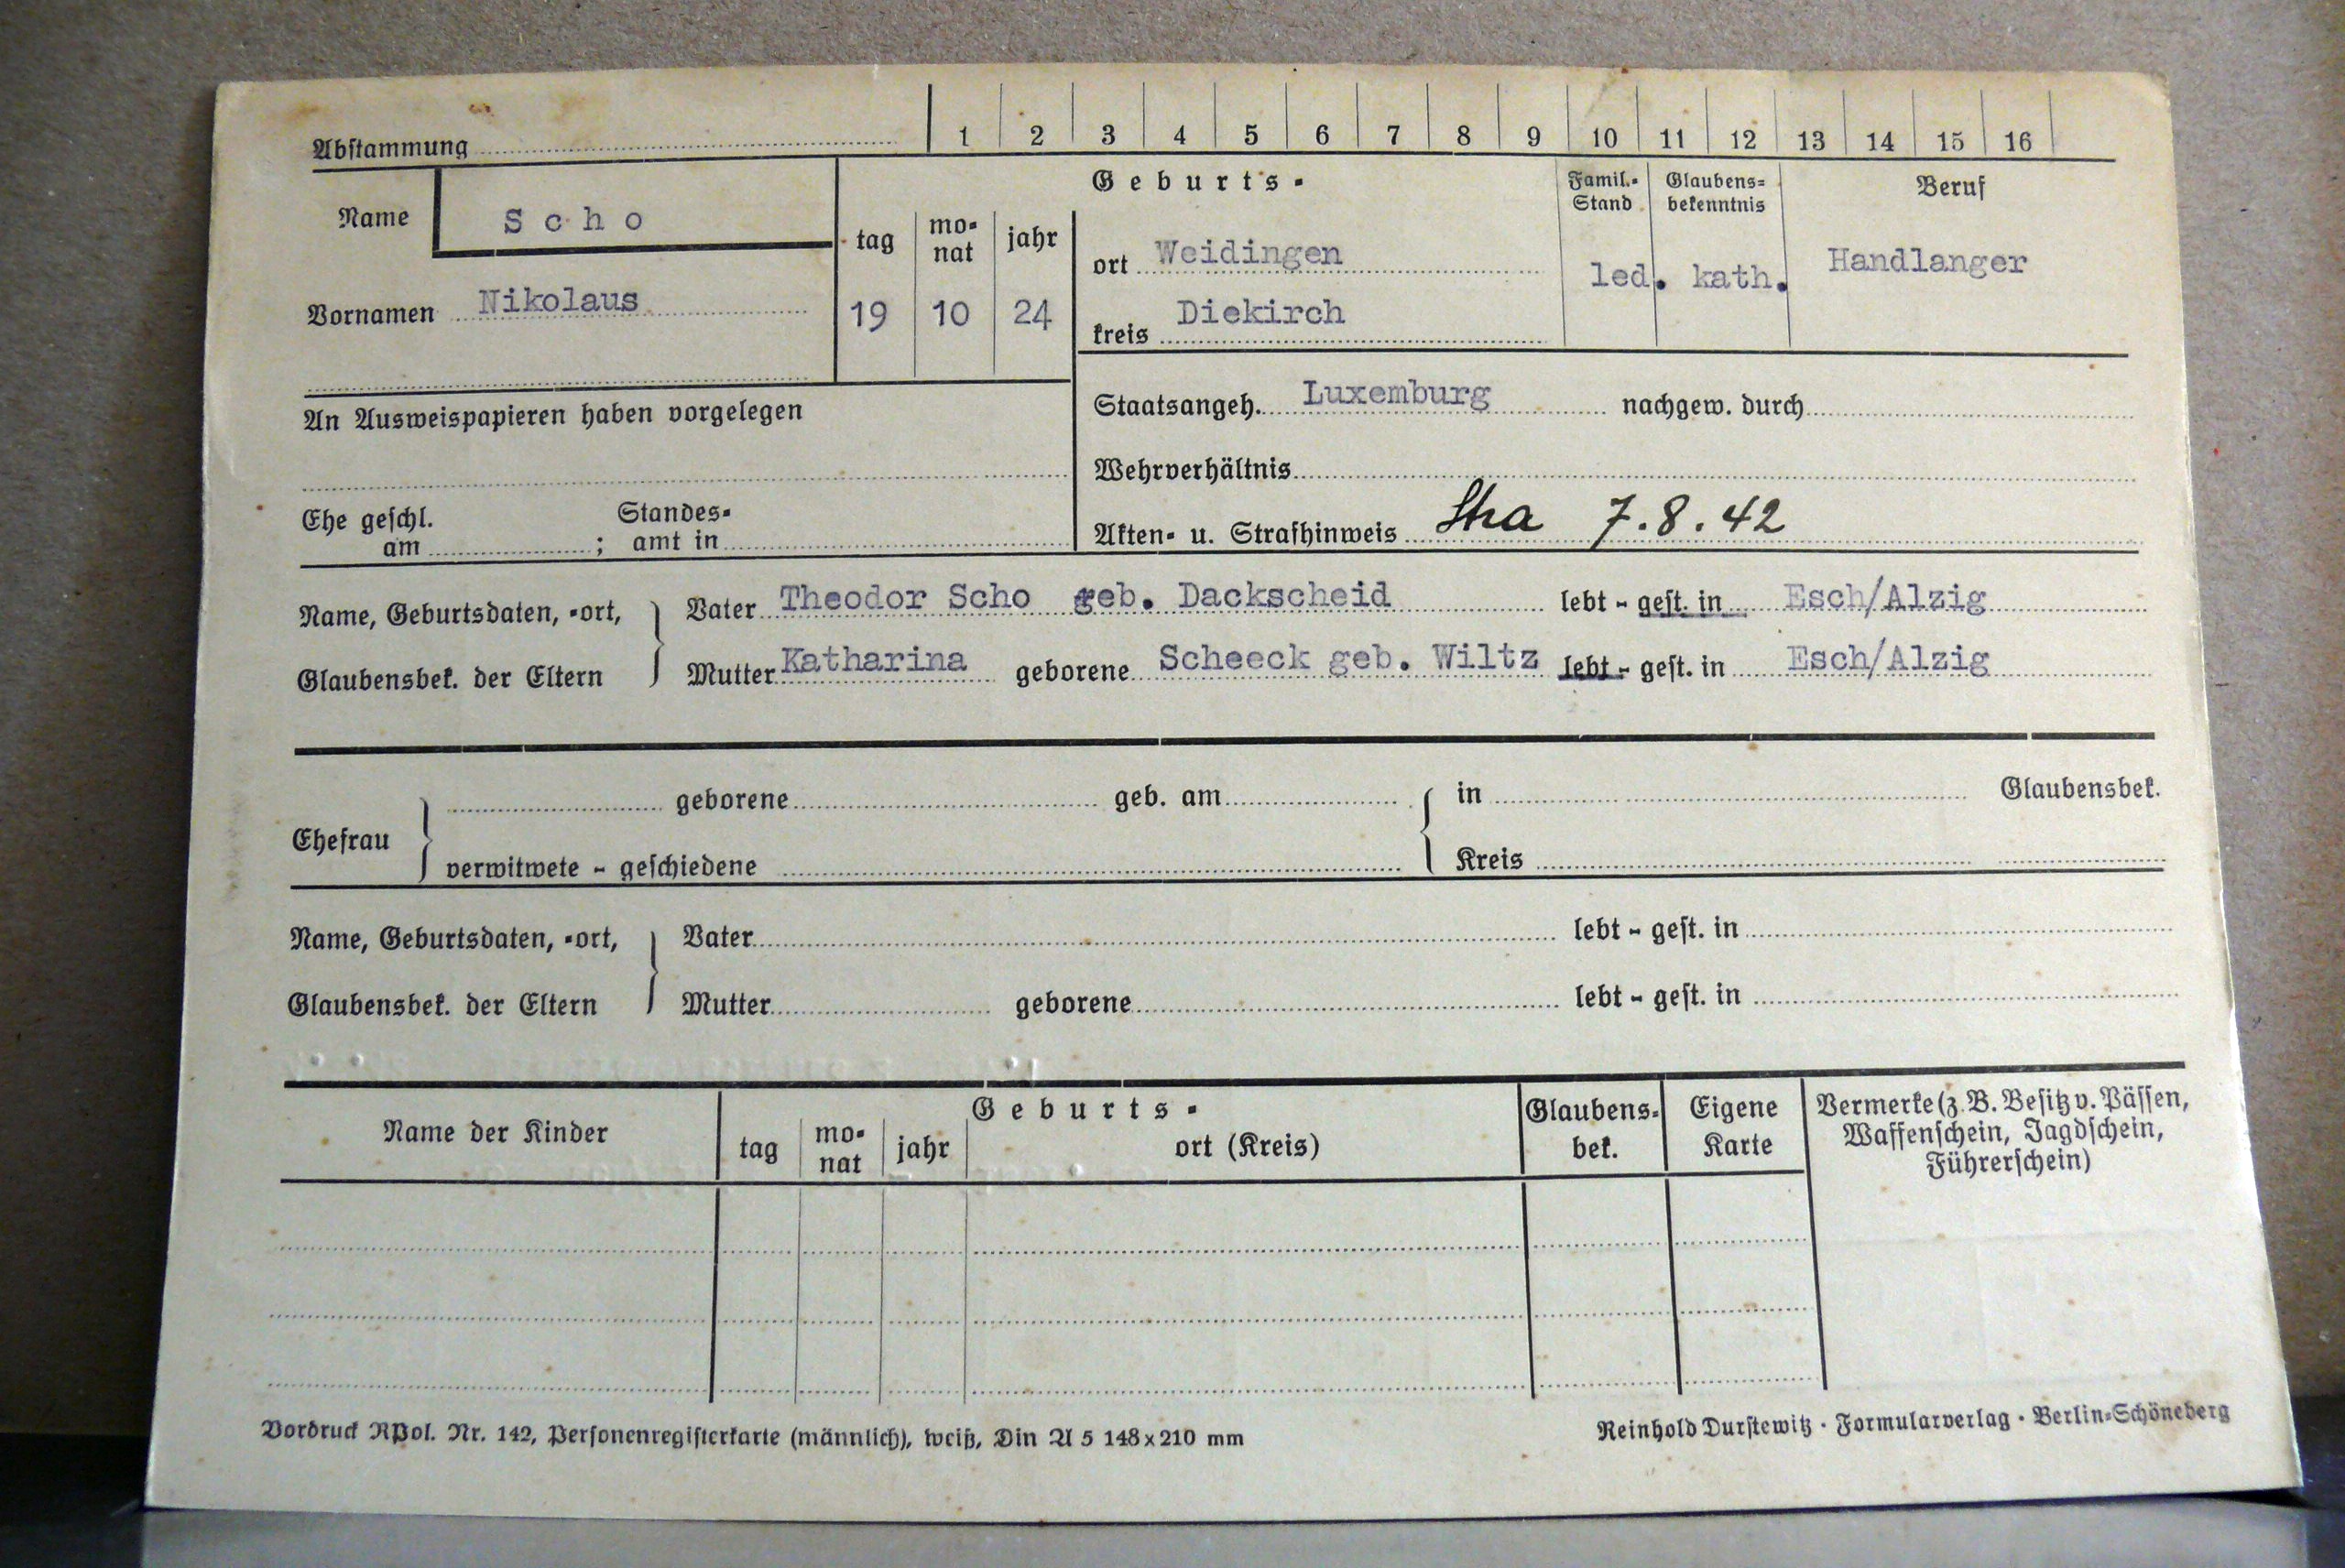 Abstammung 1 2 3 4 5 6 7 8 9 10 11 12 13 14 15 16
Name Scho
Geburts-
Famil.- Stand
Glaubens= bekenntnis
Beruf
tag mo- nat jahr
ort Weidingen
led. kath. Handlanger
Vornamen Nikolaus 19 10 24
kreis Diekirch
An Ausweispapieren haben vorgelegen
Staatsangeh. Luxemburg nachgew. durch
Wehrverhältnis
Ehe geschl. am ; Standes- amt in
Akten- u. Strafhinweis Stra 7.8.42
Name, Geburtsdaten, -ort, Vater Theodor Scho geb. Dackscheid lebt - gest. in Esch/Alzig
Glaubensbek. der Eltern Mutter Katharina geborene Scheeck geb. Wiltz lebt - gest. in Esch/Alzig
geborene geb. am in Glaubensbek.
Ehefrau
verwitwete - geschiedene Kreis
Name, Geburtsdaten, -ort, Vater lebt - gest. in
Glaubensbek. der Eltern Mutter geborene lebt - gest. in
Name der Kinder
Geburts-
tag mo- nat jahr ort (Kreis)
Glaubens- bek.
Eigene Karte
Vermerke (z. B. Besitz v. Pässen,
Waffenschein, Jagdschein,
Führerschein)
Vordruck RPol. Nr. 142, Personenregisterkarte (männlich), weiß, Din A 5 148x210 mm
Reinhold Durstewitz · Formularverlag · Berlin=Schöneberg